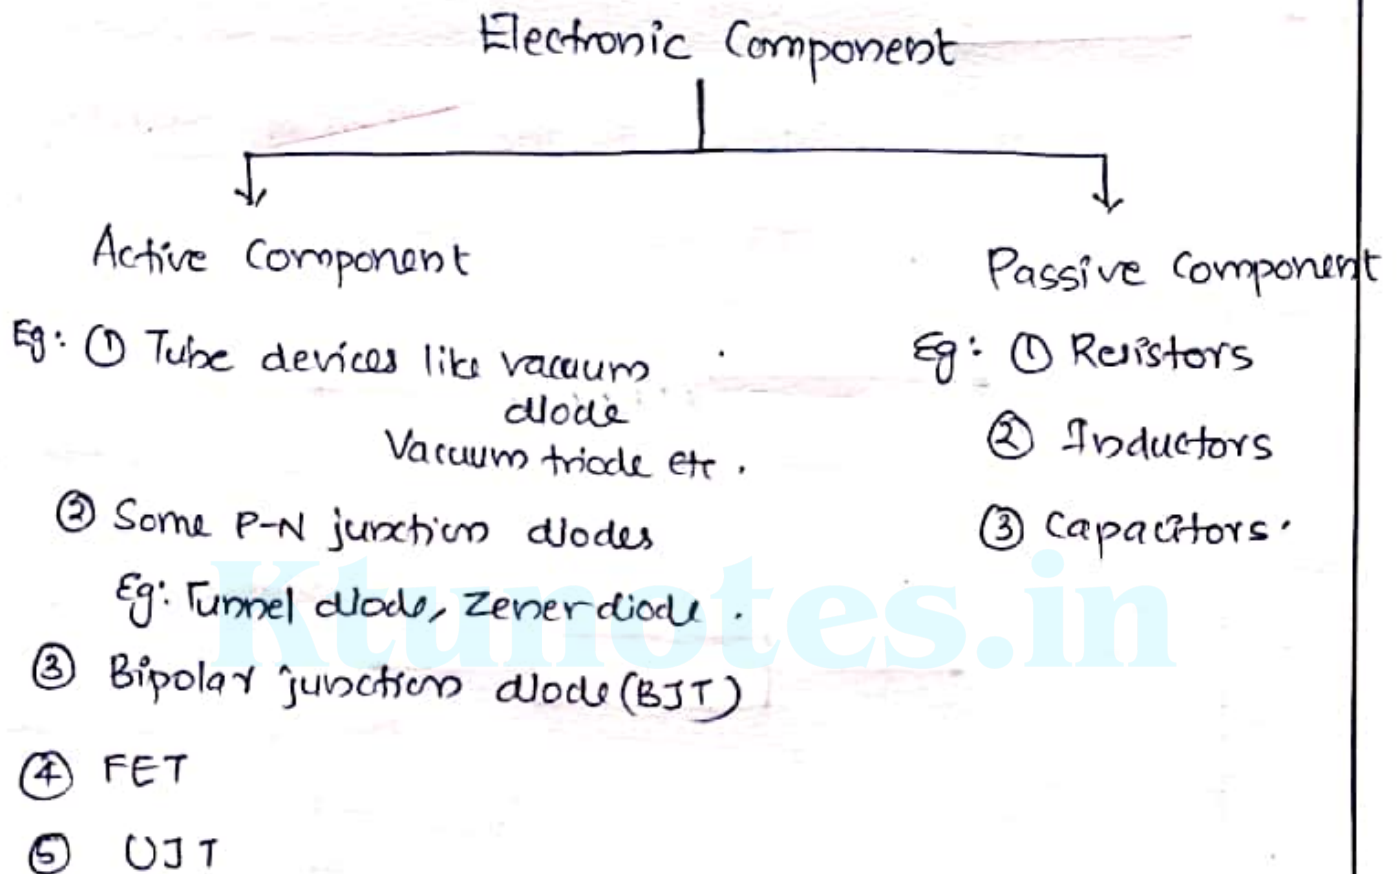 Electronic Component
Active Component
Eg: ① Tube devices like vacuum
diode
Vacuum triode etc.
② Some P-N junction diodes
Eg: Tunnel diode, Zener diode.
③ Bipolar junction diode (BJT)
④ FET
⑤ UJT
Passive Component
Eg: ① Resistors
② Inductors
③ Capacitors.
Ktunotes.in